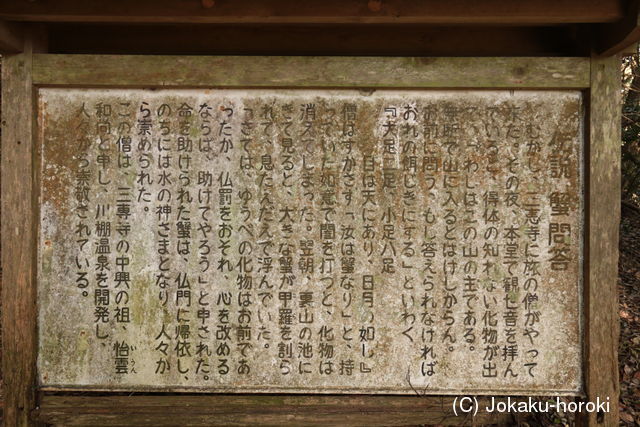 伝説 蟹問答
むかし、三恵寺に旅の僧がやって
来た。その夜、本堂で観世音を拝ん
でいると、得体の知れない化物が出
て、「わしはこの山の主である。
無断で山に入るとはけしからん。
お前に問う、もし答えられなければ
おれの餌じきにする」といわく
『大足二足、小足八足
日は天にあり、日月の如し』
僧はすかさず「汝は蟹なり」と、持
っていた如意で闇を打つと、化物は
消えてしまった。翌朝、裏山の池に
きて見ると、大きな蟹が甲羅を割ら
れて、息たえだえで浮んでいた。
「さては、ゆうべの化物はお前であ
ったか、仏罰をおそれ、心を改める
ならば、助けてやろう」と申された。
命を助けられた蟹は、仏門に帰依し、
のちには水の神さまとなり、人々か
ら崇められた。
この僧は、三恵寺の中興の祖、怡雲
いうん
和尚と申し、川棚温泉を開発し、
人々から崇敬されている。
(C) Jokaku-horoki